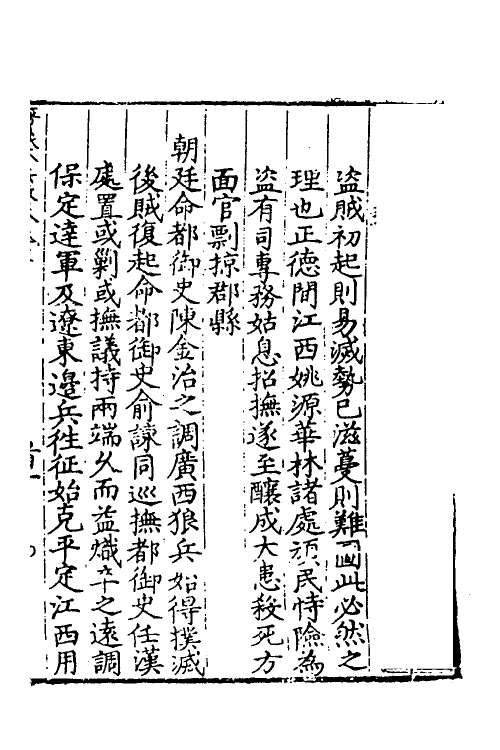 盗賊初起則易滅勢已滋蔓則難圖此必然之
理也正德間江西姚源華林諸處頑民恃險為
盗有司專務姑息招撫遂至釀成大患殺死方
面官剽掠郡縣
朝廷命都御史陳金治之調廣西狼兵始得撲滅
後賊復起命都御史俞諫同巡撫都御史任漢
處置或剿或撫議持兩端久而益熾卒之遠調
保定達軍及遼東邊兵徃征始克平定江西用